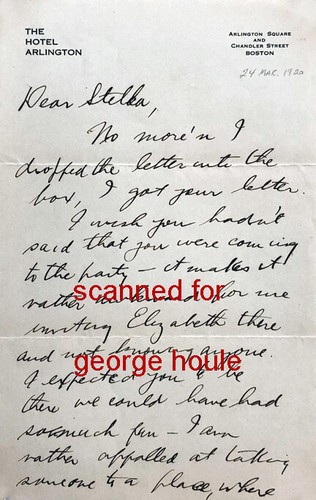 THE
HOTEL
ARLINGTON
ARLINGTON SQUARE
AND
CHANDLER STREET
BOSTON
24 MAR. 1920
Dear Stella,
No more'n I
dropped the letter into the
box, I got your letter.
I wish you hadn't
said that you were coming
to the party – it makes it
rather for me
scanned for
inviting Elizabeth there
and not knowing anyone.
george houle
I expected you to be
there we could have had
so much fun – I am
rather appalled at taking
someone to a place, where